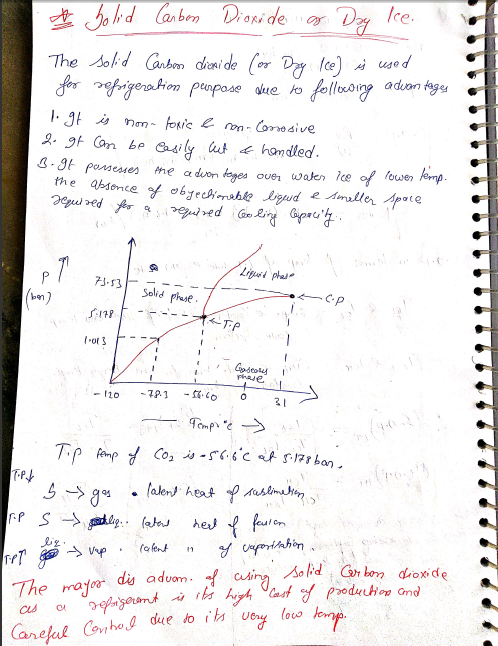 Solid Carbon Dioxide or Dry Ice.
The solid Carbon dioxide (or Dry Ice) is used
for refrigeration purpose due to following advantages
1. It is non-toxic & non-Corrosive
2. It Can be easily Cut & handled.
3. It possesses the advantages over water ice of lower temp.
the absence of objectionable liquid & smaller space
required for a required Cooling Capacity.
P
(bar)
73.53
Liquid phase
Solid phase.
C.P
5.178
T.P
1.013
Gaseous
phase
-120 -78.3 -56.60 0 31
Temp °C
T.p temp of CO2 is -56.6°C at 5.178 bar.
T.P↓ S → gas • latent heat of sublimation
T.P S → liq. latent heat of fusion
T.P↑ liq. → vap. latent " of vaporisation.
The major dis advan. of using Solid Carbon dioxide
as a refrigerant is its high Cost of production and
Careful Control due to its very low temp.